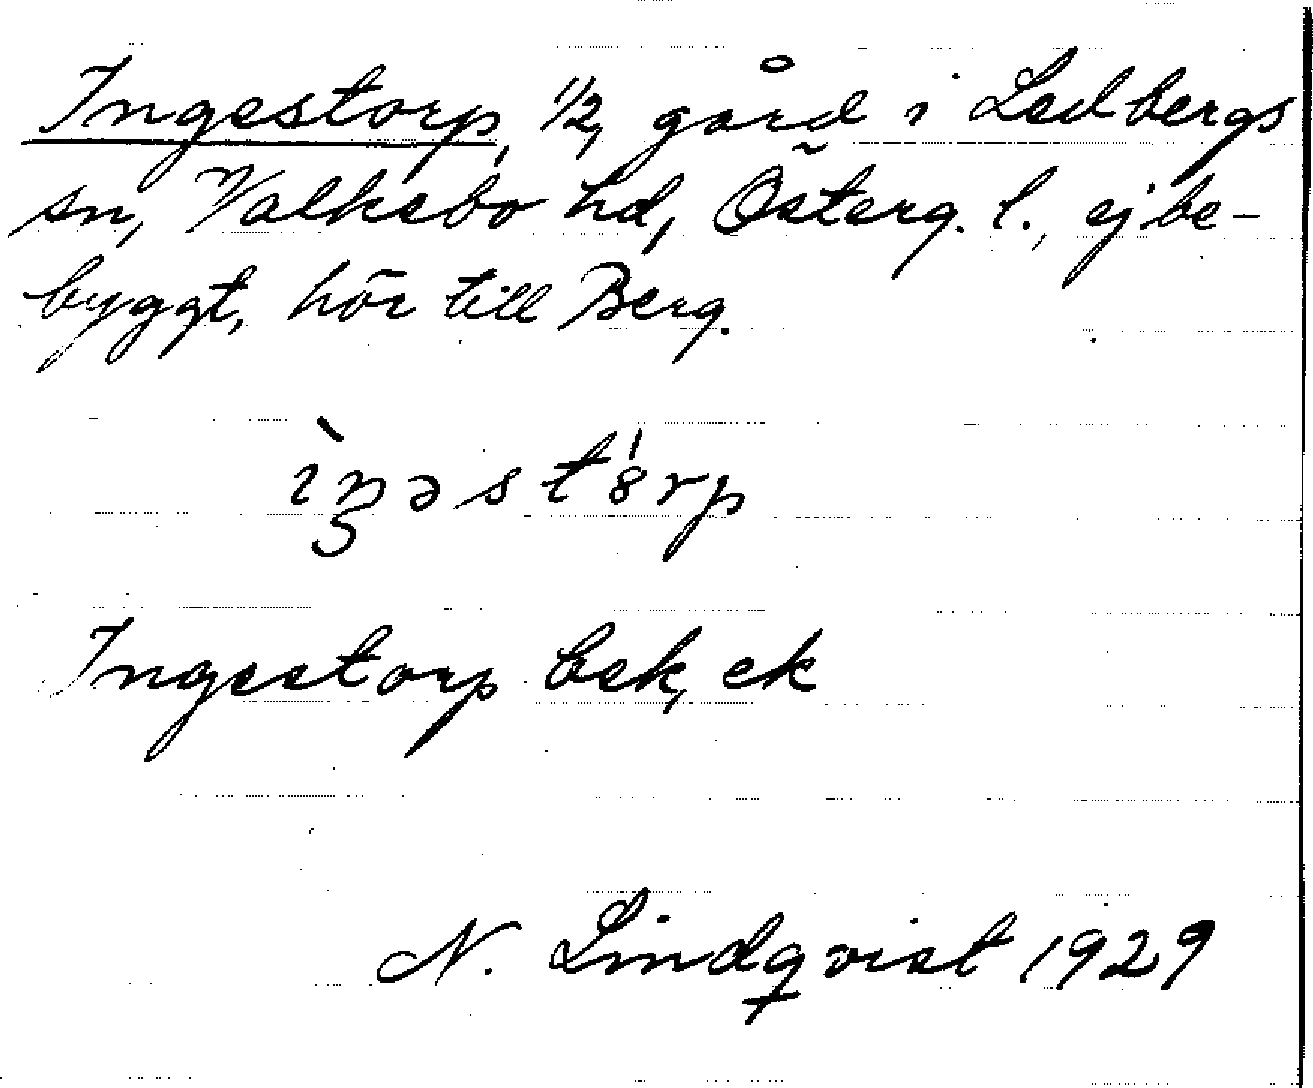 Ingestorp, 1/2, gård i Ledbergs
sn, Valkebo hd, Österg. l., ej be-
byggt, hör till Berg.
Ingestorp bek, ek
N. Lindqvist 1929